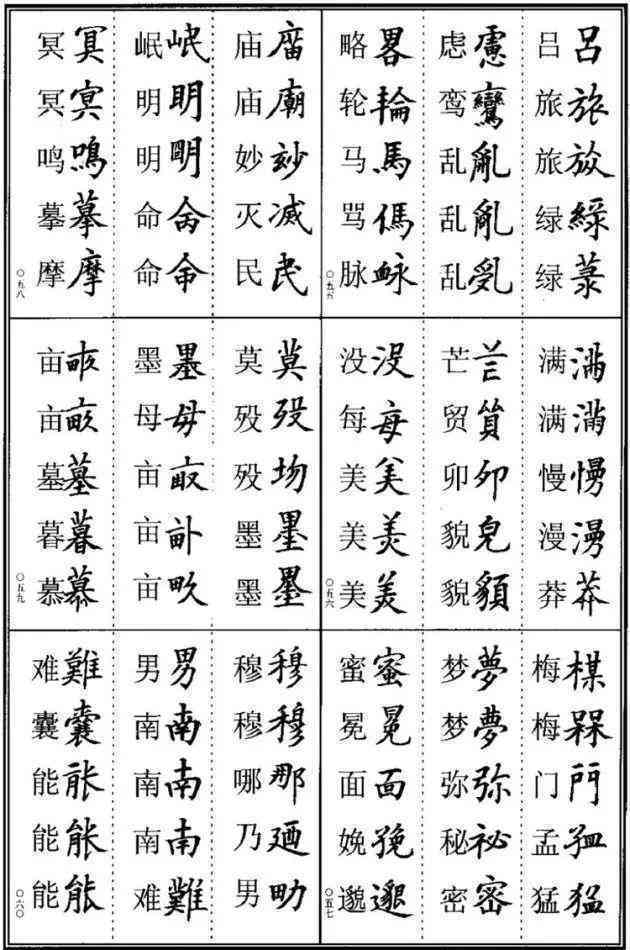 吕 呂
旅 旅
旅
绿 綠
绿 菉
虑 慮
鸾 鸞
乱 亂
乱 亂
乱
略 畧
轮 輪
马 馬
骂 傌
脉 衇
〇五五
满 满
满 满
慢 慢
漫 漫
莽 莽
芒 芒
贸 貿
卯 夘
貌 皃
貌
没 没
每 每
美 美
美 羙
美 羙
〇五六
梅 楳
梅 槑
门 門
孟
猛 猛
梦 夢
梦 夢
弥 弥
秘 祕
密 密
蜜 蜜
冕 冕
面 面
娩
邈 邈
〇五七
庙
庙 廟
妙 玅
灭 滅
民 民
岷 岷
明 明
明 朙
命
命 命
冥 冥
冥 冥
鸣 鳴
摹 摹
摩 摩
〇五八
莫 莫
殁 殁
殁 歾
墨 墨
墨 墨
墨 墨
母 母
亩
亩
亩 畂
亩
亩 畝
墓 墓
暮 暮
慕 慕
〇五九
穆 穆
穆 穆
哪 那
乃 廼
男
男 男
南 南
南 南
南 南
难 難
难 難
囊 囊
能
能
能 能
〇六〇